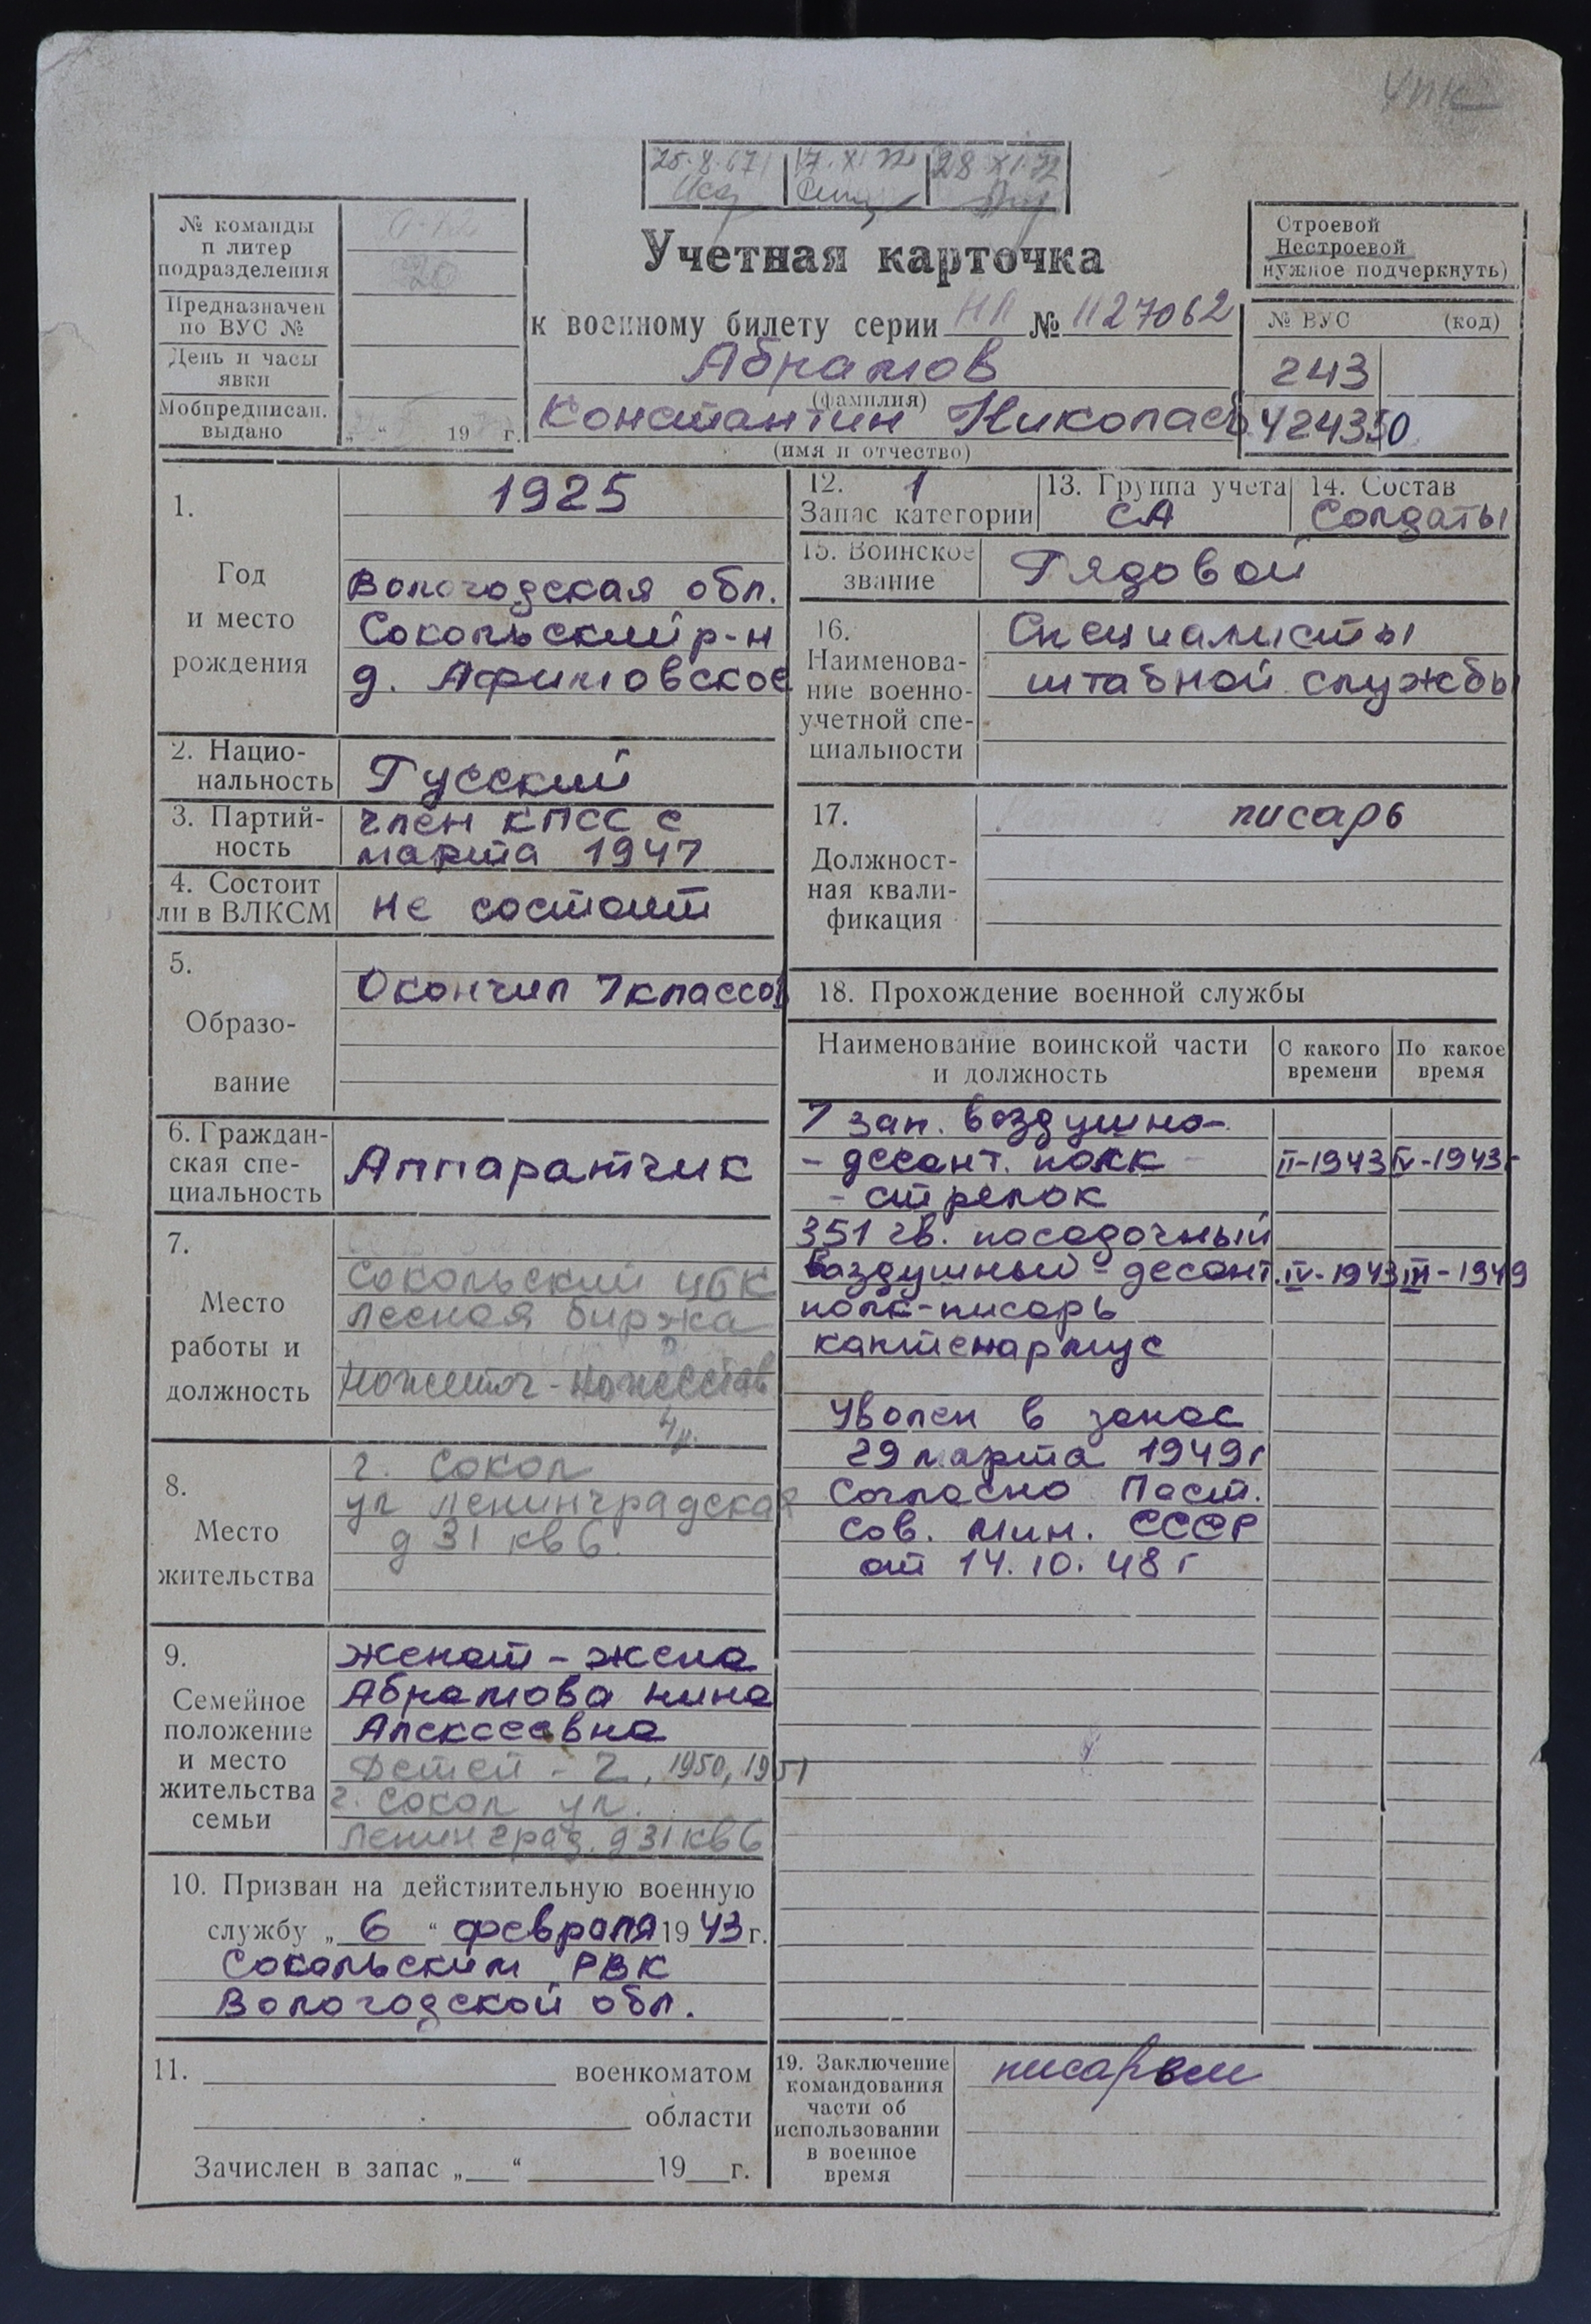 УПК
25.X.67 17.XI.72 28.XI.72
№ команды
п литер
подразделения
20
Предназначен
по ВУС №
День и часы
явки
Мобпредписан.
выдано
„ “ 19 г.
Учетная карточка
к военному билету серии НЛ № 1127062
Абрамов
(фамилия)
Константин Николаев
(имя и отчество)
Строевой
Нестроевой
нужное подчеркнуть)
№ ВУС (код)
243
424350
1.
Год
и место
рождения
1925
Вологодская обл.
Сокольский р-н
д. Афимовское
2. Нацио-
нальность
Русский
3. Партий-
ность
член КПСС с
марта 1947
4. Состоит
ли в ВЛКСМ
не состоит
5.
Образо-
вание
Окончил 7 классов
6. Граждан-
ская спе-
циальность
Аппаратчик
7.
Место
работы и
должность
Сокольский ЦБК
лесная биржа
4р.
8.
Место
жительства
г. Сокол
ул Ленинградская
д 31 кв 6.
9.
Семейное
положение
и место
жительства
семьи
Женат – жена
Абрамова Нина
Алексеевна
Детей – 2, 1950, 1951
г. Сокол ул.
Ленинград. д 31 кв 6
10. Призван на действительную военную
службу „ 6 “ февраля 19 43 г.
Сокольским РВК
Вологодской обл.
11. военкоматом
области
Зачислен в запас „ “ 19 г.
12. 1
Запас категории
13. Группа учета
СА
14. Состав
Солдаты
15. Воинское
звание
Рядовой
16.
Наименова-
ние военно-
учетной спе-
циальности
Специалисты
штабной службы
17.
Должност-
ная квали-
фикация
писарь
18. Прохождение военной службы
Наименование воинской части
и должность
С какого
времени
По какое
время
7 зап. воздушно-
- десант. полк - II-1943 IV-1943
- стрелок
351 гв. посадочный
Воздушный - десант. IV-1943 III-1949
полк-писарь
каптенармус
Уволен в запас
29 марта 1949 г
Согласно Пост.
Сов. Мин. СССР
от 14.10.48 г
19. Заключение
командования
части об
использовании
в военное
время
писарем